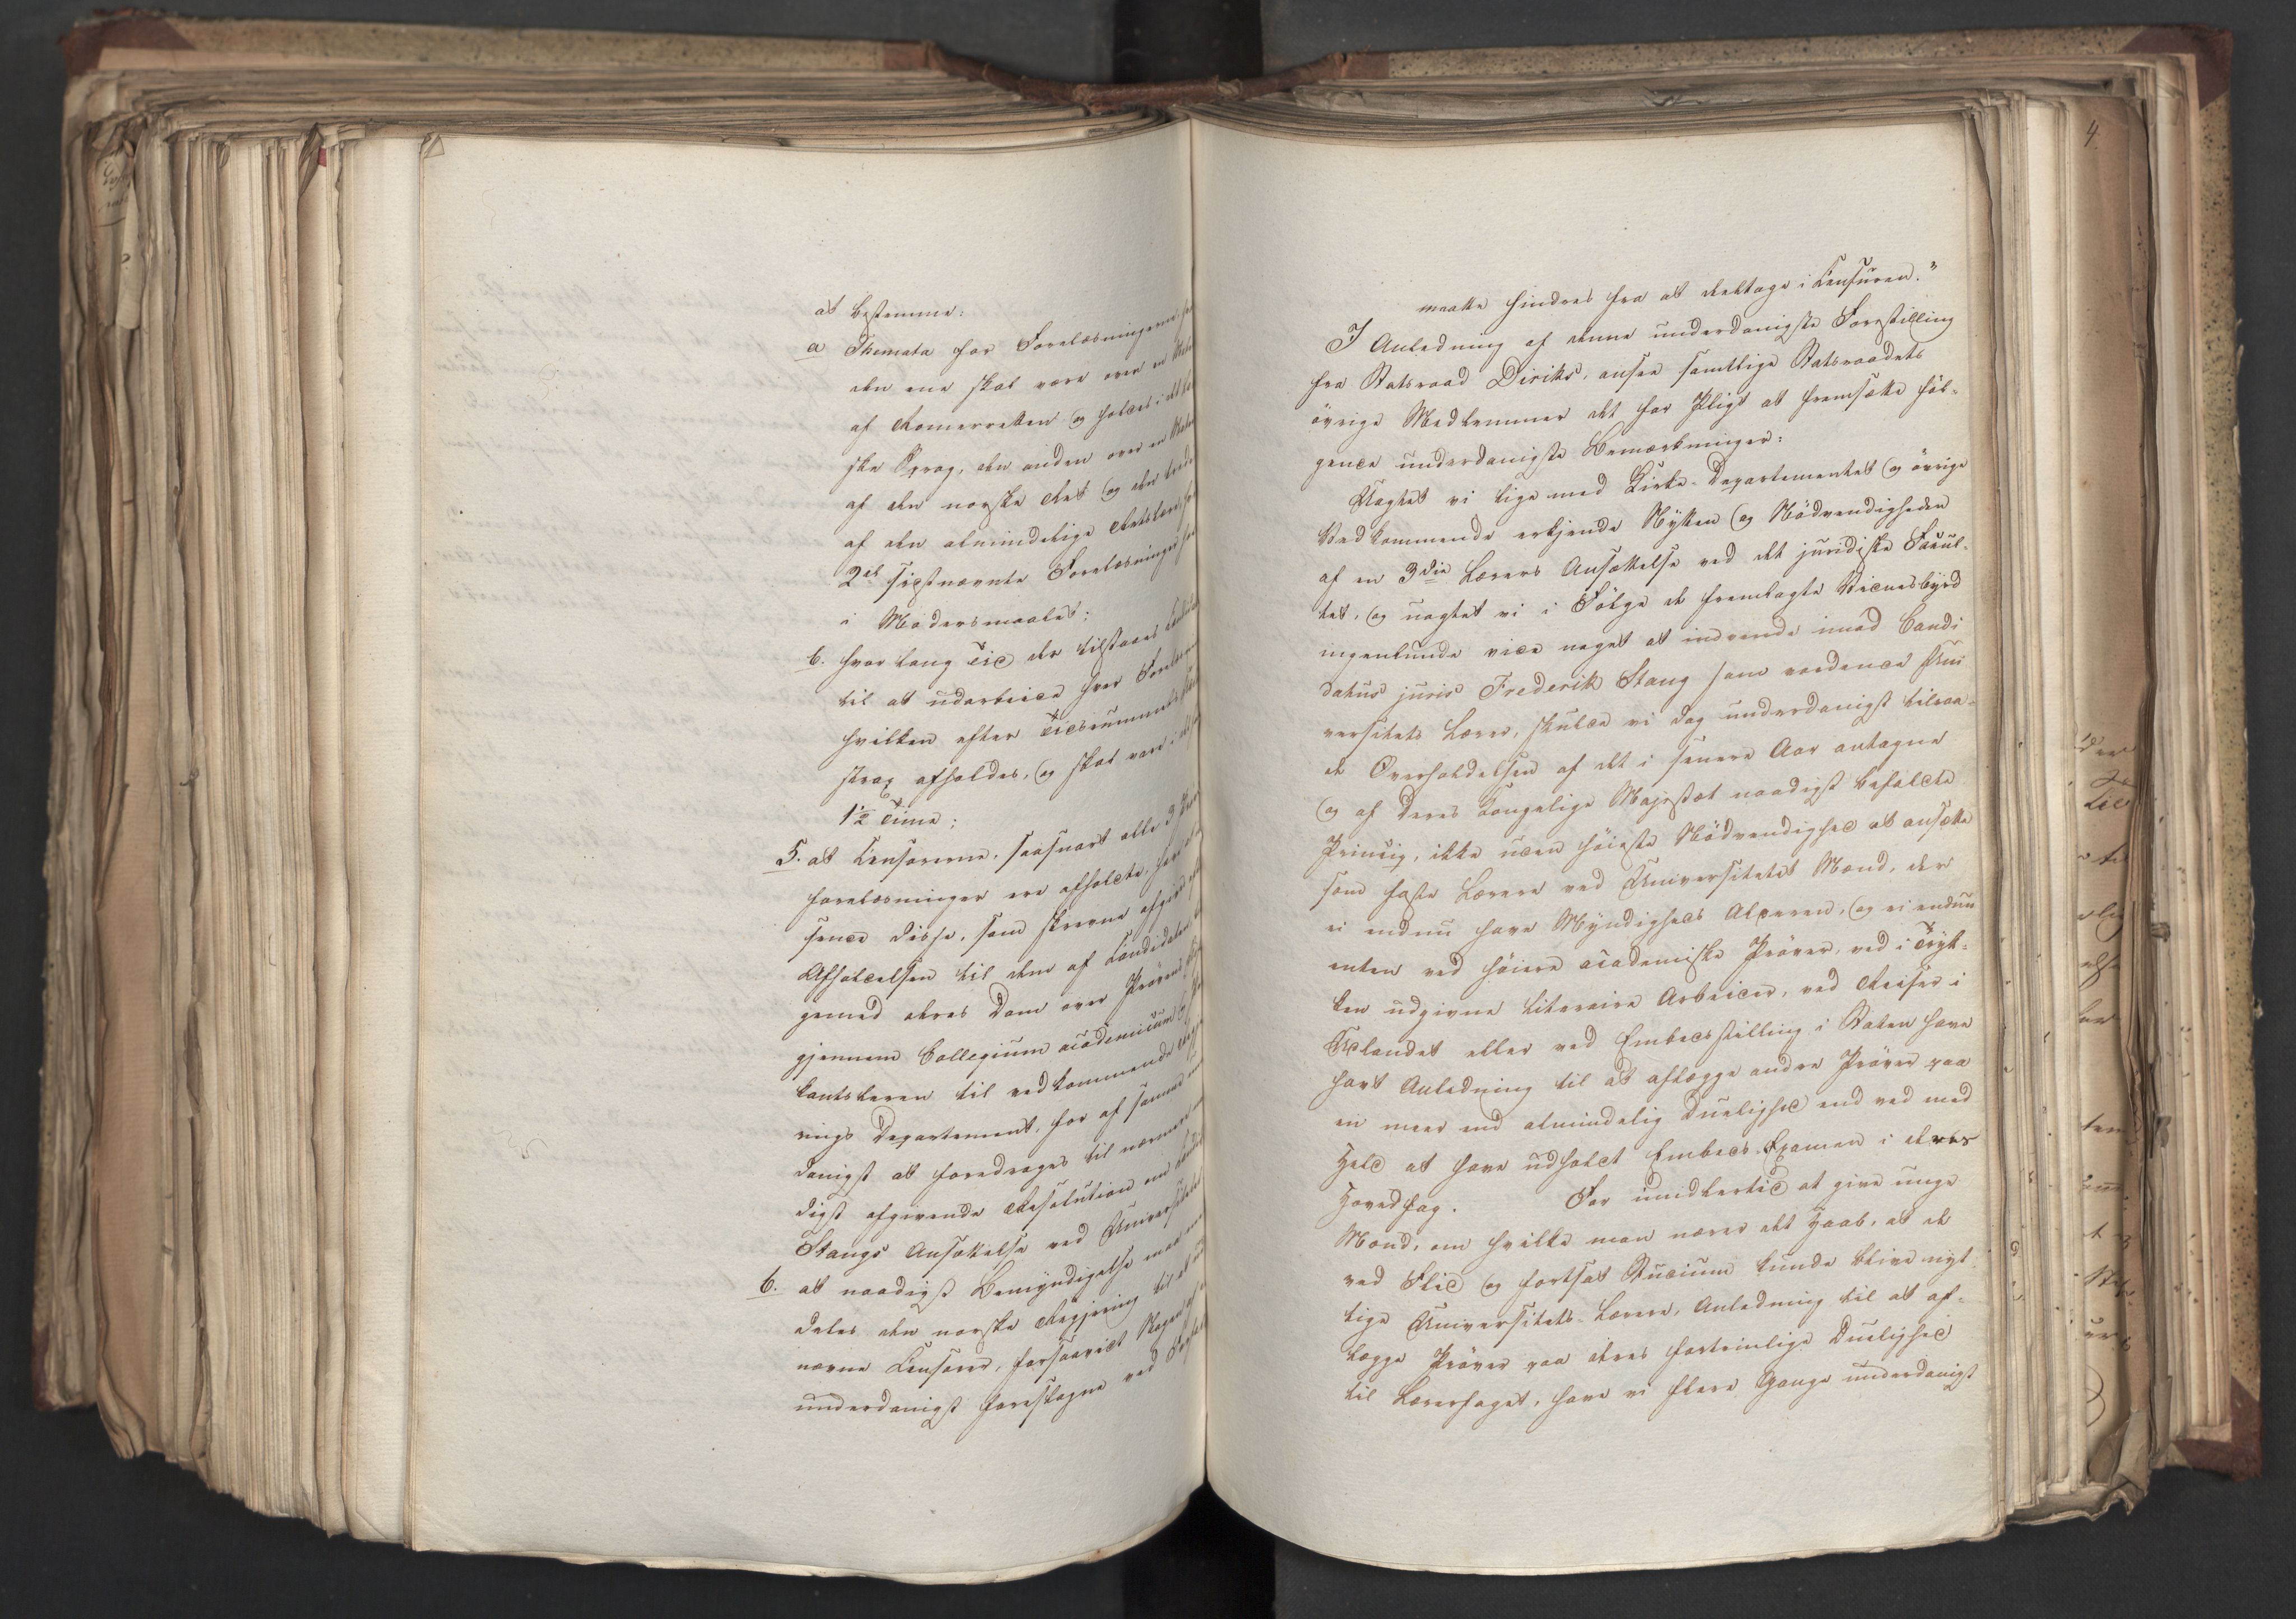 at bestemme:
a Themata for Forelæsningerne,
den ene skal være over en
af Romerretten og holdes i det
ske Sprog, den anden over en
af den norske Ret og den
af den almindelige Retslære,
2de sidstnævnte Forelæsninger
i Modersmaalet;
b. hvor lang Tid der tilstaaes
til at udarbeide hver
hvilken efter Tidsrummets
strax afholdes, og skal vare i
1½ Time;
5. at Censorerne, saasnart alle 3
forelæsninger ere afholdte,
sende disse, som skrevne
Afholdelsen til dem af Candidaten
gemed deres Dom over Prøven
gjennem Collegium academicum
kantsleren til vedkommende
rings Departement, for af samme
danigst at foredrages til nærmere
digst afgivende Resolution om
Stangs Ansættelse ved Universitetet
6. at naadigst Bemyndigelse maa
deles den norske Regjering til at
nævne Censorer, forsaavidt
underdanigst foreslagne ved
maatte hindres fra at deeltage i Censuren."
I Anledning af denne underdanigste Forestilling
fra Statsraad Diriks, ansee samtlige Statsraadets
övrige Medlemmer det for Pligt at fremsætte föl-
gende underdanigste Bemærkninger:
Uagtet vi lige med Kirke-Departementet og övrige
Vedkommende erkjende Nytten og Nödvendigheden
af en 3die Lærers Ansættelse ved det juridiske Facul-
tet, og uagtet vi i Fölge de fremlagte Vidnesbyrd
ingenlunde vide noget at indvende imod Candi
datus juris Frederik Stang som vordende Uni
versitets Lærer, skulde vi dog underdanigst tilraa-
de Overholdelsen af det i senere Aar antagne
og af Deres Kongelige Majestæt naadigst befalede
Princip, ikke uden höieste Nödvendighed at ansætte
som faste Lærere ved Universitetet Mænd, der
ei endnu have Myndigheds Alderen, og ei endnu
enten ved höiere academiske Pröver, ved i Tryk-
ken udgivne literaire Arbeider, ved Reiser i
Udlandet eller ved Embedsstilling i Staten have
havt Anledning til at aflægge andre Pröver paa
en meer end almindelig Duelighed end ved med
Held at have udholdt Embeds-Examen i deres
Hovedfag. For imidlertid at give unge
Mænd, om hvilke man nærer det Haab, at de
ved Flid og fortsat Studium kunde blive nyt
tige Universitets-Lærere, Anledning til at af-
lægge Pröver paa deres fortrinlige Duelighed
til Lærerfaget, have vi flere Gange underdanigst
4